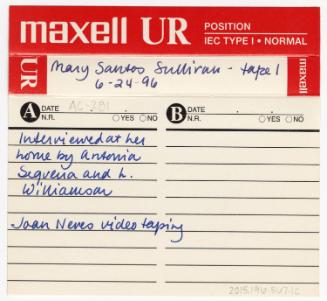 maxell UR POSITION
IEC TYPE I • NORMAL
UR
Mary Santos Sullivan - tape 1
6-24-96
maxell
A DATE AC-281
N.R. ○YES ○NO
B DATE
N.R. ○YES ○NO
Interviewed at her
home by Antonia
Sequeria and L.
Williamson
Joan Neves video taping